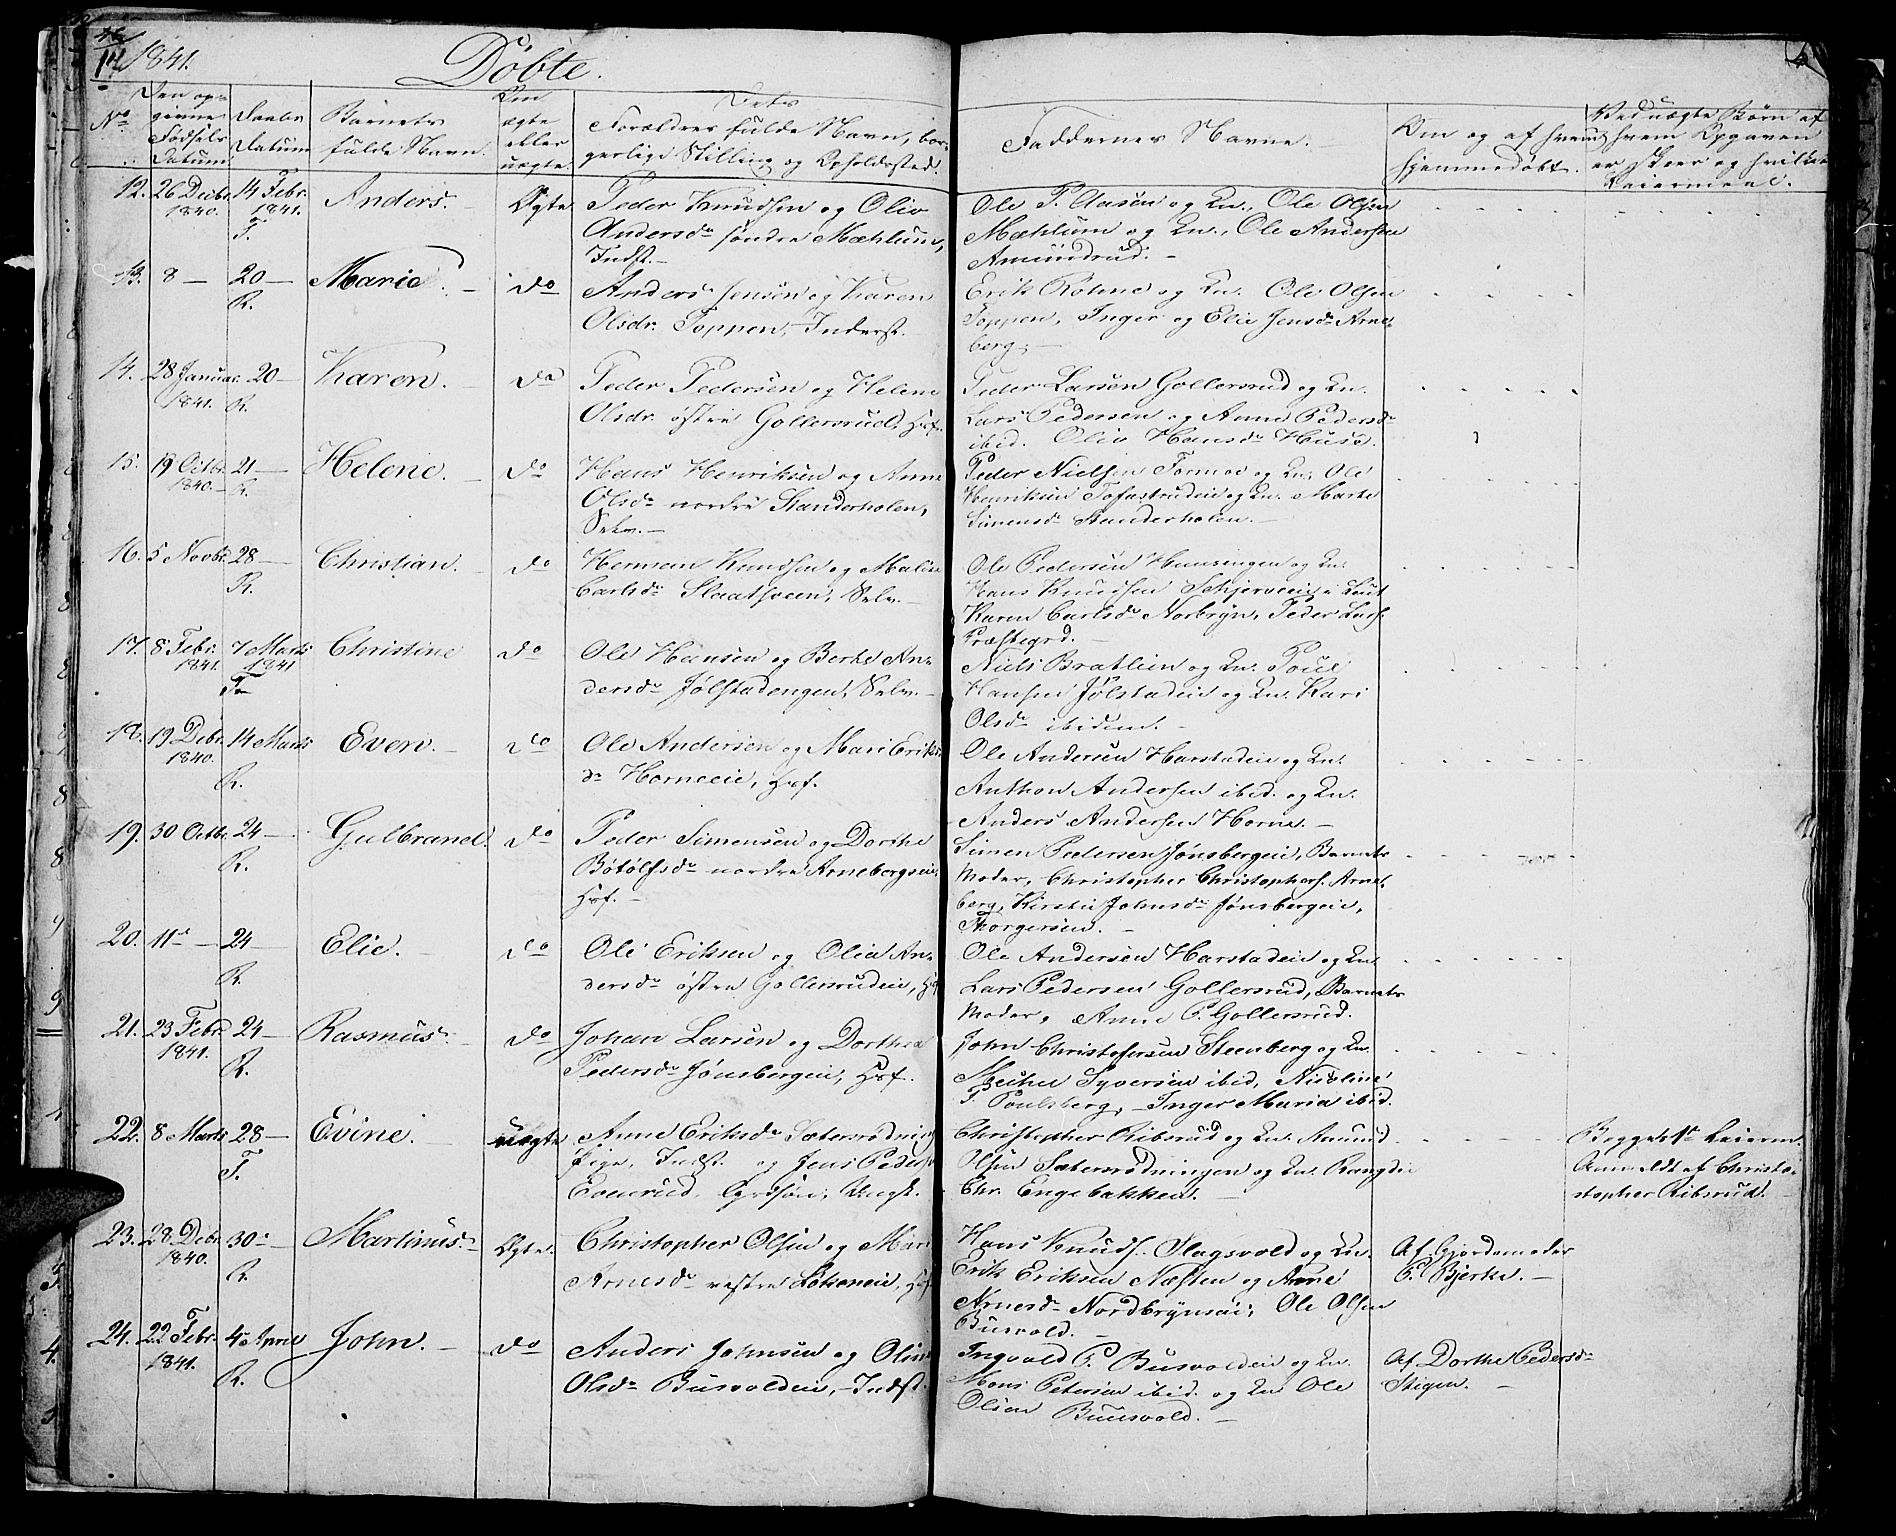 1841.
Døbte.
No
Den op-
givne
Fødsels
Datum.
Daabs
Datum
Barnets
fulde Navn.
Om
ægte
eller
uægte.
Dets
Forældres fulde Navn, bor-
gerlige Stilling og Opholdssted.
Faddernes Navne.
Om og af hvem
hjemmedøbt.
Ved uægte Børn af
hvem Opgaven
er skeer og hvilket
Leiermaal.
12. 26 Decbr. 1840. 14 Febr. 1841. T. Anders. Ægte
Peder Knudsen og Oliv
Andersdr søndre Mæhlum,
Indst.
Ole P. Aasen og Kn., Ole Olsen
Mæhlum og Kn., Ole Andersen
Amundrud.
13. 8 — 20 — R. Marie. do
Anders Jensen og Karen
Olsdr. Toppen, Inderst.
Erik Rohne og Kn. Ole Olsen
Toppen, Inger og Elie Jensdr Arne-
berg.
14. 28 Januar 1841. 20 — R. Karen. do
Peder Pedersen og Helene
Olsdr. østre Gollersrud, Hsf.
Peder Larsen Gollersrud og Kn.
Lars Pedersen og Anne Pedersdr
ibid. Oliv Hansdr Huse.
15. 19 Octbr. 1840. 21 — R. Helene. do
Hans Henriksen og Anne
Olsdr nordre Standerholen,
Selv.
Peder Nielsen Formoe og Kn. Ole
Henriksen Tofastrudeie og Kn. Marte
Simensdr Standerholen.
16. 5 Novbr. 28 — R. Christian. do
Herman Knudsen og Malene
Carlsdr Slaatsveen, Selv.
Ole Pedersen og Kn.
Hans Knudsen
Karen Carlsdr Norbryn, Peder Lars.
Præstegrd.
17. 8 Febr. 1841. 7 Marts 1841 Christine do
Ole Hansen og Berte An-
dersdr Jølstadengen, Selv.
Niels Bratlien og Kn. Poul
Hansen Jølstadeie og Kn. Kari
Olsdr ibidem.
18. 19 Decbr. 1840. 14 Marts R. Even. do
Ole Andersen og Mari Eriks-
dr Horneeie, Hsf.
Ole Andersen Harstadeie og Kn.
Anthon Andersen ibid. og Kn.
Anders Andersen Horne.
19. 30 Octbr. 24 — R. Gulbrand. do
Peder Simensen og Dorthe
Bótólfsdr nordre Arnebergseie,
Hsf.
Simen Pedersen Jønsbergeie, Barnets
Moder, Christopher Christophers. Arne-
berg, Kirstie Johnsdr Jønsbergeie,
Thorgersen.
20. 11e — 24 — R. Elie. do
Ole Eriksen og Olea An-
dersdr østre Gollersrudeie, Hsf
Ole Andersen Harstadeie og Kn.
Lars Pedersen Gollersrud, Barnets
Moder, Anne P. Gollersrud.
21. 23 Febr. 1841. 24 — R. Rasmus. do
Johan Larsen og Dorthea
Pedersdr Jønsbergeie, Hsf.
John Christofersen Steenberg og Kn.
Syversen ibid, Nicoline
P. Poulsberg, Inger Maria ibid.
22. 8 Marts 28 — T. Evine. uægte
Anne Eriksdr Sætersrødning
Pige, Indst. og Jens Peders.
Evenrud, Ungk.
Christopher Ribsrud og Kn. Amund
Olsen Sætersrødningen og Kn. Rangdi
Chr. Engebakken.
Begges 1te Leierm.
Anmeldt af Christo-
stopher Ribsrud.
23. 28 Decbr. 1840. 30 — R. Martinus. Ægte
Christopher Olsen og Mari
Arnesdr vestre Løkeneie, Hsf
Hans Knuds. Slagsvold og Kn.
Erik Eriksen Næsten og Anne
Arnesdr Nordbrynseie, Ole Olsen
Busvold.
Af Gjordemoder
P. Bjerke.
24. 22 Febr. 1841. 4 April R. John. do
Anders Johnsen og Oline
Olsdr Busvoldeie, Indst.
Ingvold P. Busvoldeie og Kn.
Mons Petersen ibid. og Kn Ole
Olsen Buusvold.
Af Dorthe Pedersdr
Stigen.